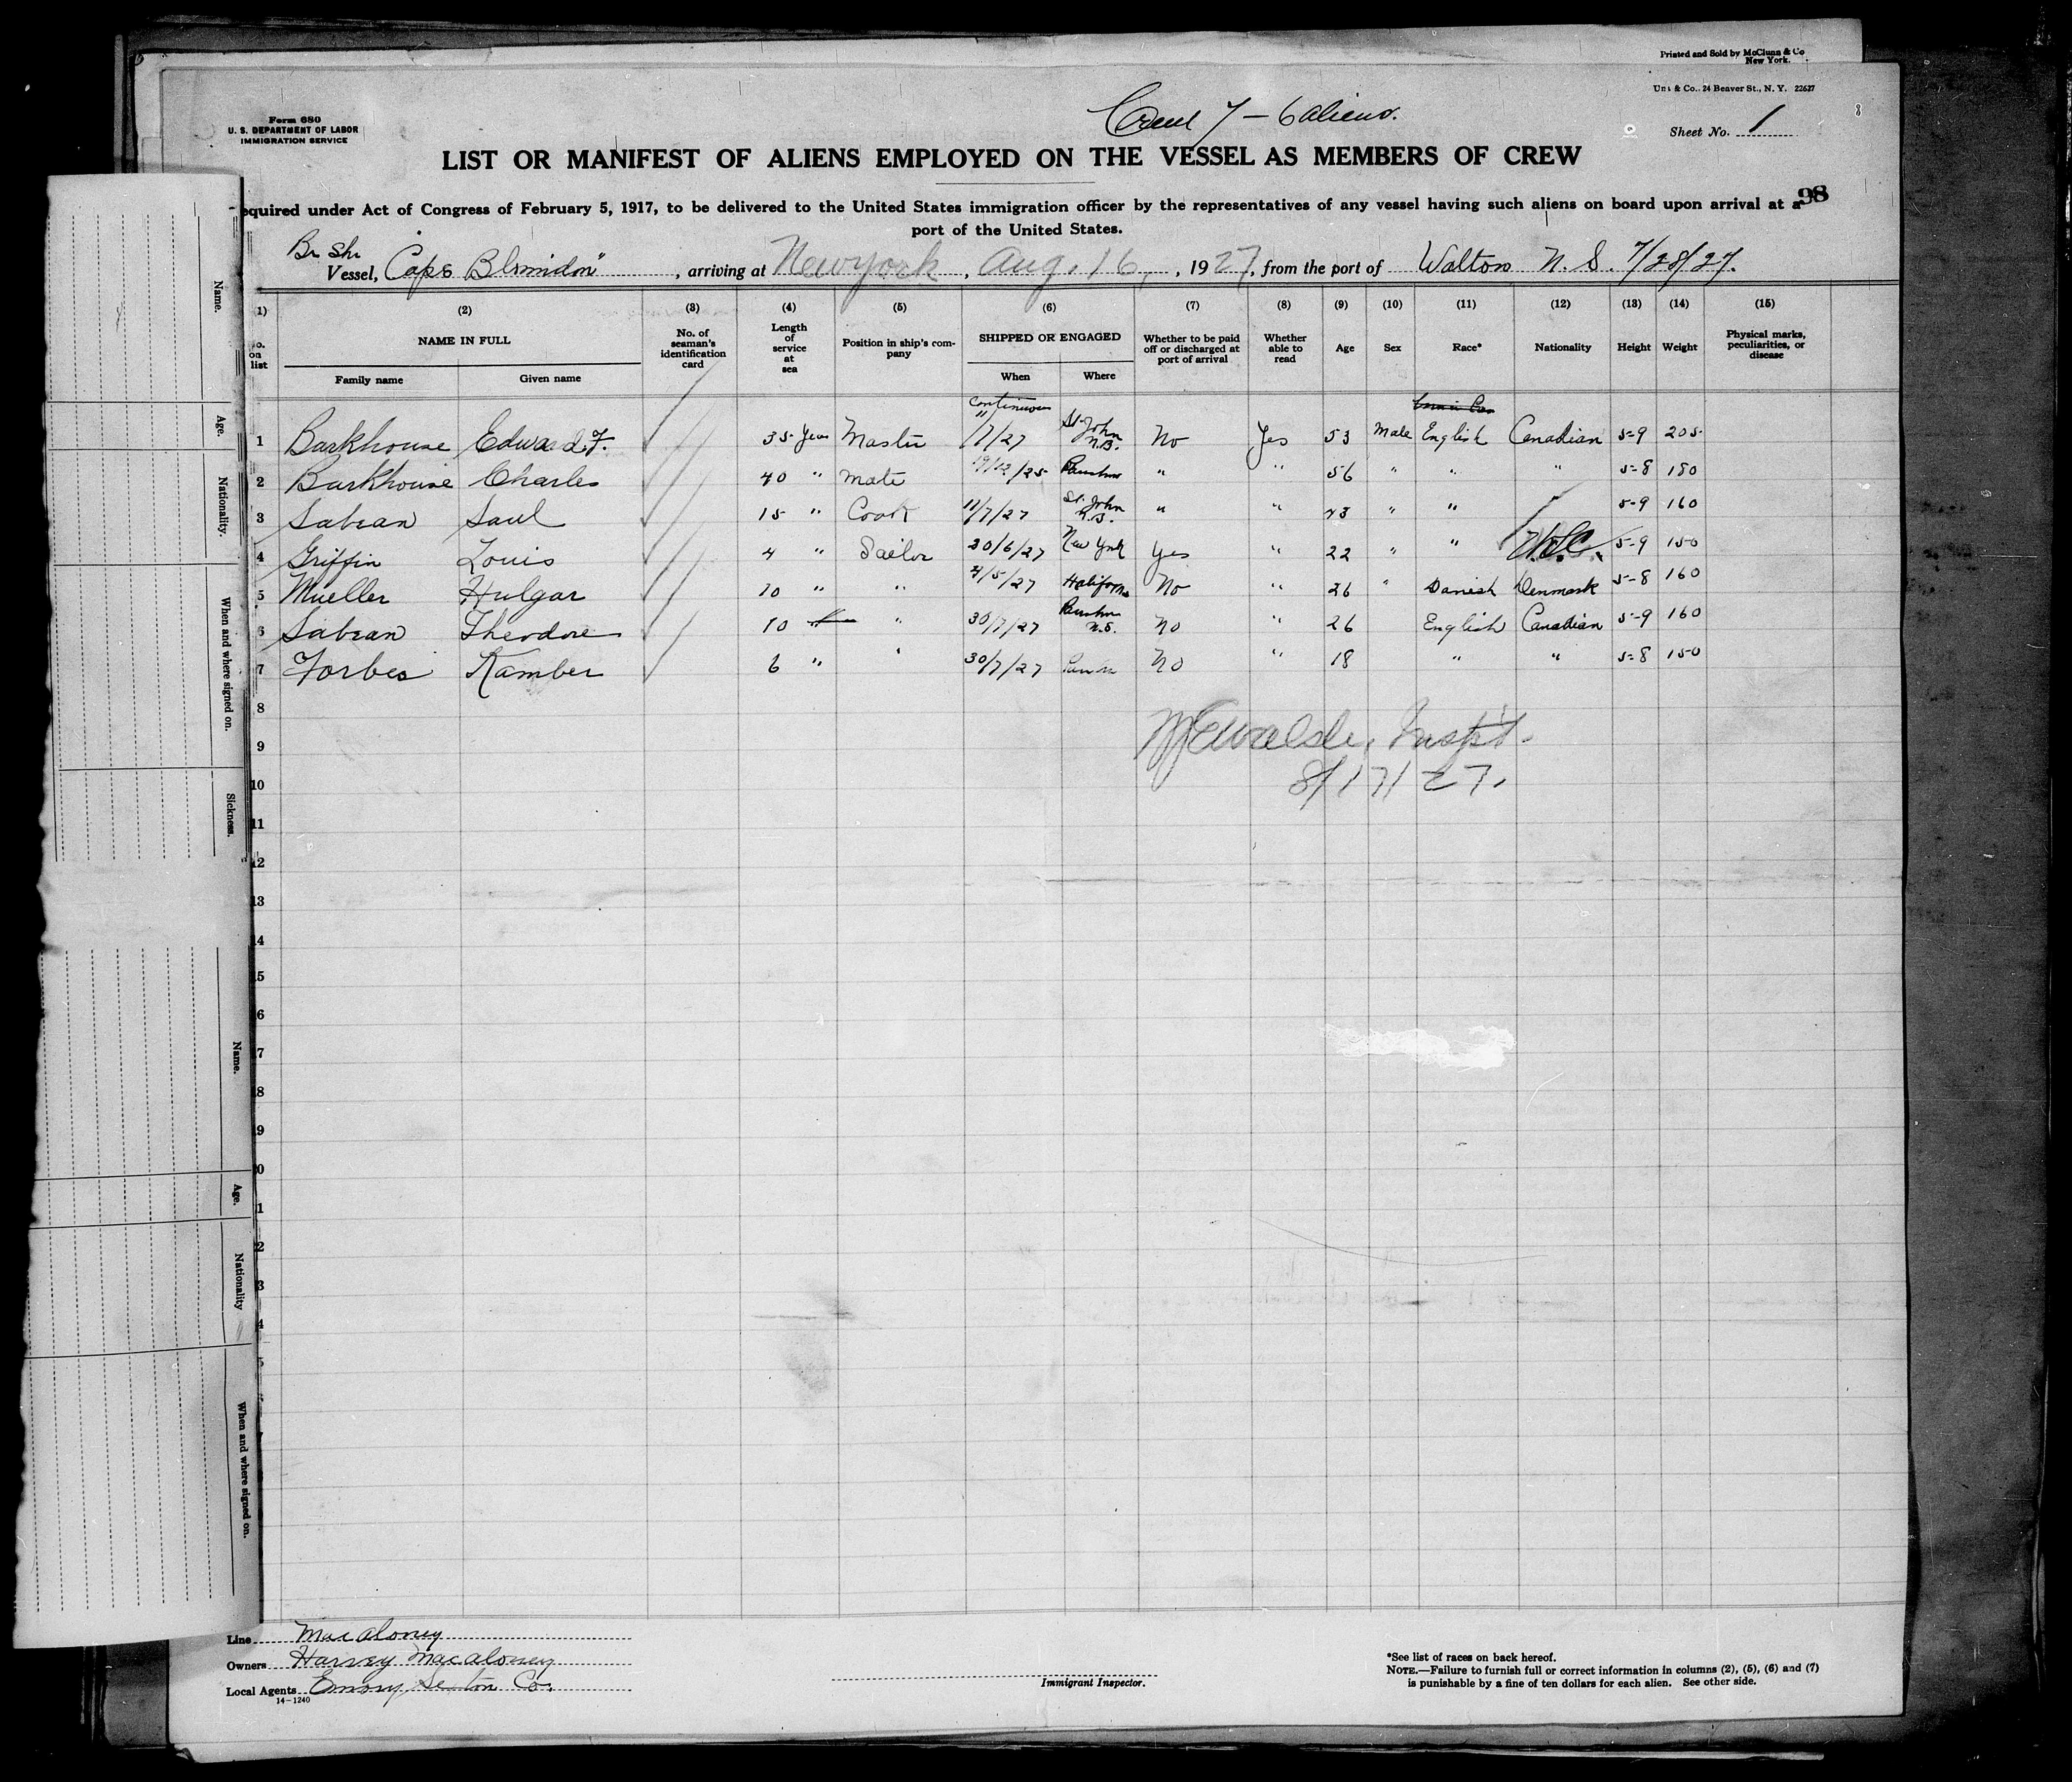 Printed and Sold by McClunn & Co
New York.
& Co., 24 Beaver St., N. Y. 22627
Form 680
U. S. DEPARTMENT OF LABOR
IMMIGRATION SERVICE
Crew 7 – 6 aliens.
Sheet No. 1
8
LIST OR MANIFEST OF ALIENS EMPLOYED ON THE VESSEL AS MEMBERS OF CREW
98
equired under Act of Congress of February 5, 1917, to be delivered to the United States immigration officer by the representatives of any vessel having such aliens on board upon arrival at a
port of the United States.
Br Shr
Vessel, Cape Blomidon", arriving at New york, Aug. 16, , 1927, from the port of Walton N. S. 7/28/27.
1) (2) (3) (4) (5) (6) (7) (8) (9) (10) (11) (12) (13) (14) (15)
o. on list NAME IN FULL Family name Given name No. of seaman's identification card Length of service at sea Position in ship's com- pany SHIPPED OR ENGAGED When Where Whether to be paid off or discharged at port of arrival Whether able to read Age Sex Race* Nationality Height Weight Physical marks, peculiarities, or disease
continuous
1 Barkhouse Edward F. 35 Years Master "/7/27 St. John N.B. No Yes 53 Male English Canadian 5-9 205
2 Barkhouse Charles 40 " Mate 19/12/25 " " 56 " " " 5-8 180
3 Sabean Saul 15 " Cook 11/7/27 St. John N.B. " " 43 " " 5-9 160
4 Griffin Louis 4 " Sailor 30/6/27 New York Yes " 22 " " U.S.C. 5-9 150
5 Mueller Hulgar 10 " " 4/5/27 Halifax No " 26 " Danish Denmark 5-8 160
6 Sabean Theodore 10 " 30/7/27 N.S. No " 26 English Canadian 5-9 160
7 Forbes Kamber 6 " " 30/7/27 No " 18 " " 5-8 150
8
9 Walsh, Inspt.
10 8/17/27.
11
12
13
14
15
16
17
18
19
0
1
2
3
4
5
Name.
Age.
Nationality.
When and where signed on.
Sickness.
Name.
Age.
Nationality
When and where signed on.
Line Macaloney
Owners Harvey Macaloney
Local Agents Emory Sexton Co.
14-1240
Immigrant Inspector.
*See list of races on back hereof.
NOTE.—Failure to furnish full or correct information in columns (2), (5), (6) and (7)
is punishable by a fine of ten dollars for each alien. See other side.